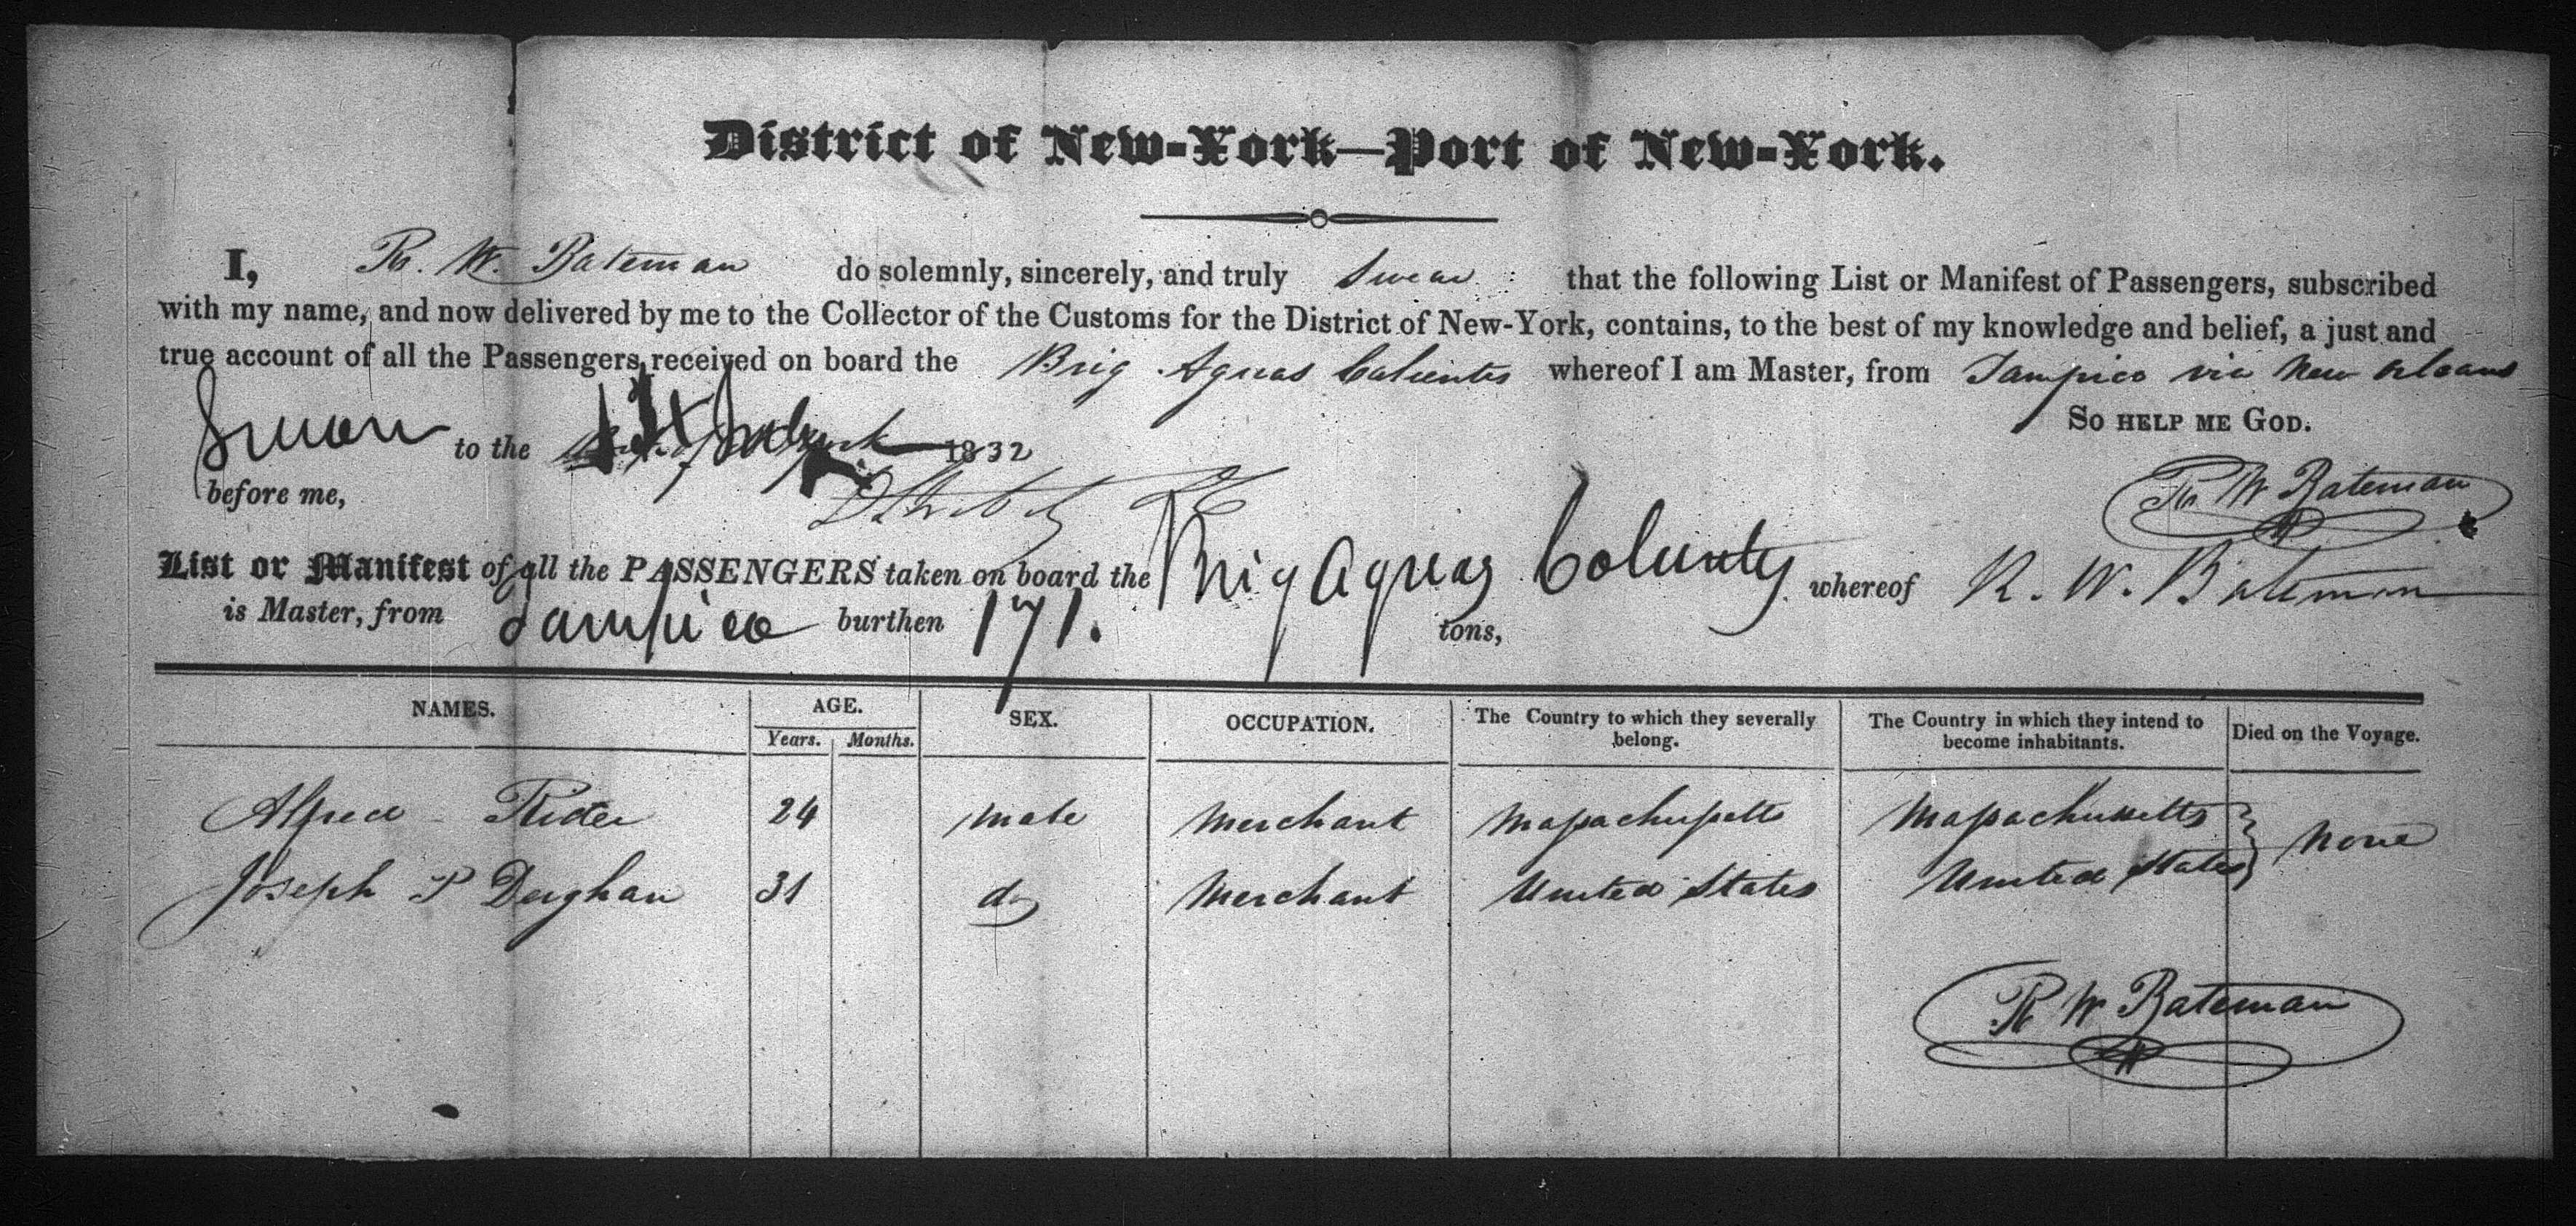 District of New-York—Port of New-York.
I, R. W. Bateman do solemnly, sincerely, and truly Swear that the following List or Manifest of Passengers, subscribed
with my name, and now delivered by me to the Collector of the Customs for the District of New-York, contains, to the best of my knowledge and belief, a just and
true account of all the Passengers received on board the Brig Aguas Calientes whereof I am Master, from Tampico via New Orleans
Sworn to the 1832 SO HELP ME GOD.
before me, R W Bateman
List or Manifest of all the PASSENGERS taken on board the Brig Aguas whereof R. W. Bateman
is Master, from Tampico burthen 171. tons,
NAMES. AGE. SEX. OCCUPATION. The Country to which they severally belong. The Country in which they intend to become inhabitants. Died on the Voyage.
Years. Months.
Alfred Rider 24 male Merchant Massachusetts Massachusetts None
Joseph P Deighan 31 do Merchant United States United States
R W Bateman